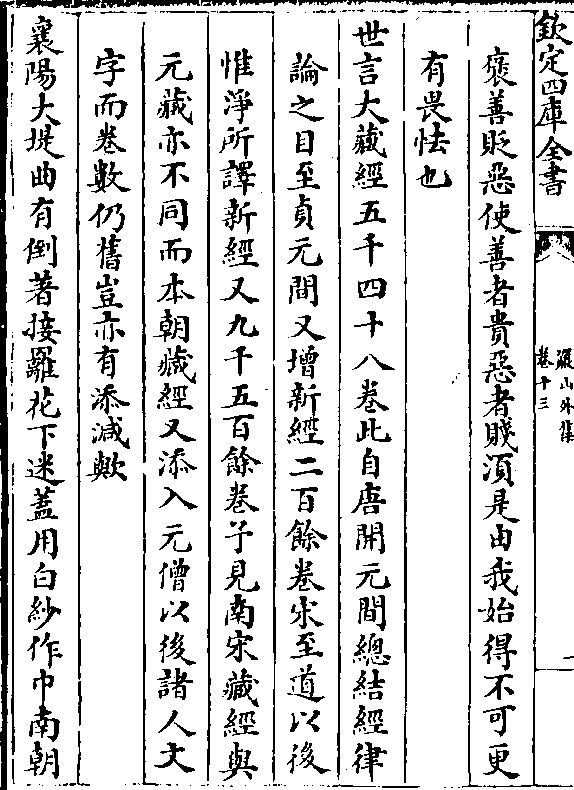 欽定四庫全書
儼山外集
卷十三
褒善貶惡使善者貴惡者賤須是由我始得不可更
有畏怯也
世言大藏經五千四十八卷此自唐開元間總結經律
論之目至貞元間又增新經二百餘卷宋至道以後
惟淨所譯新經又九千五百餘卷予見南宋藏經與
元藏亦不同而本朝藏經又添入元僧以後諸人文
字而卷數仍舊豈亦有添減歟
襄陽大堤曲有倒著接䍦花下迷蓋用白紗作巾南朝